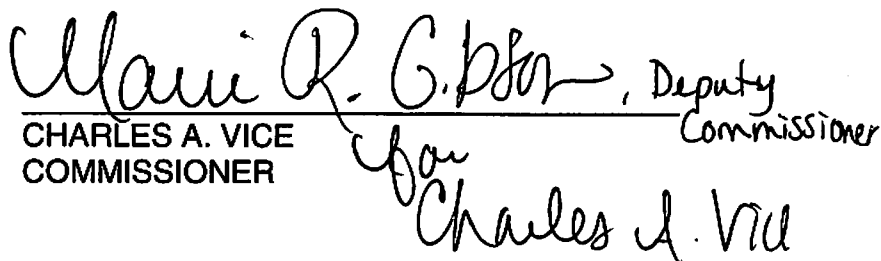 Marni R. Gibson, Deputy
Commissioner
CHARLES A. VICE
COMMISSIONER
for
Charles A. Vice